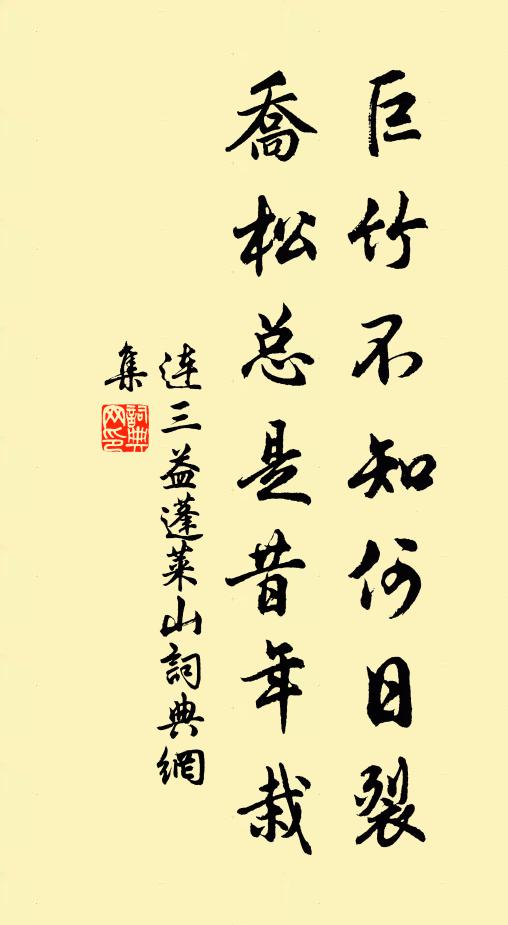 巨竹不知何日裂
喬松总是昔年栽
連三益蓬萊山詞典網
集
詞典网印